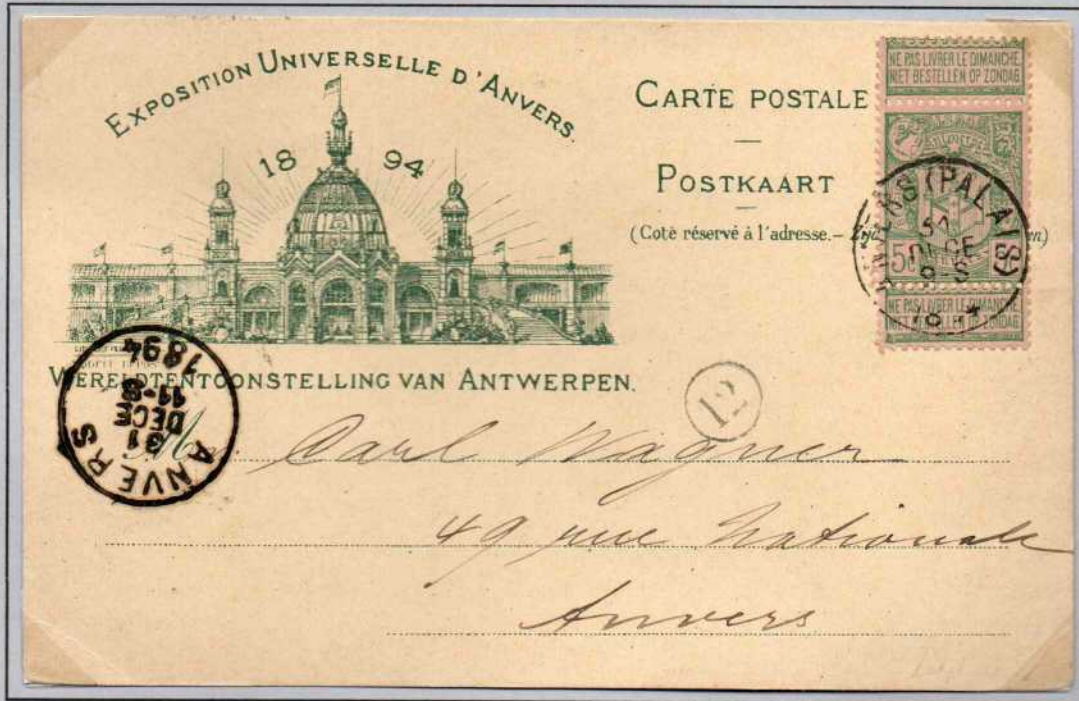 EXPOSITION UNIVERSELLE D'ANVERS
18 94
WERELDTENTOONSTELLING VAN ANTWERPEN.
CARTE POSTALE
—
POSTKAART
—
(Coté réservé à l'adresse.–
NE PAS LIVRER LE DIMANCHE
NIET BESTELLEN OP ZONDAG
5
NE PAS LIVRER LE DIMANCHE
NIET BESTELLEN OP ZONDAG
ANVERS (PALAIS)
DECE
8-S
ANVERS
31
DECE
11-S
1894
12
M. Carl Wagner
49 rue Nationale
Anvers